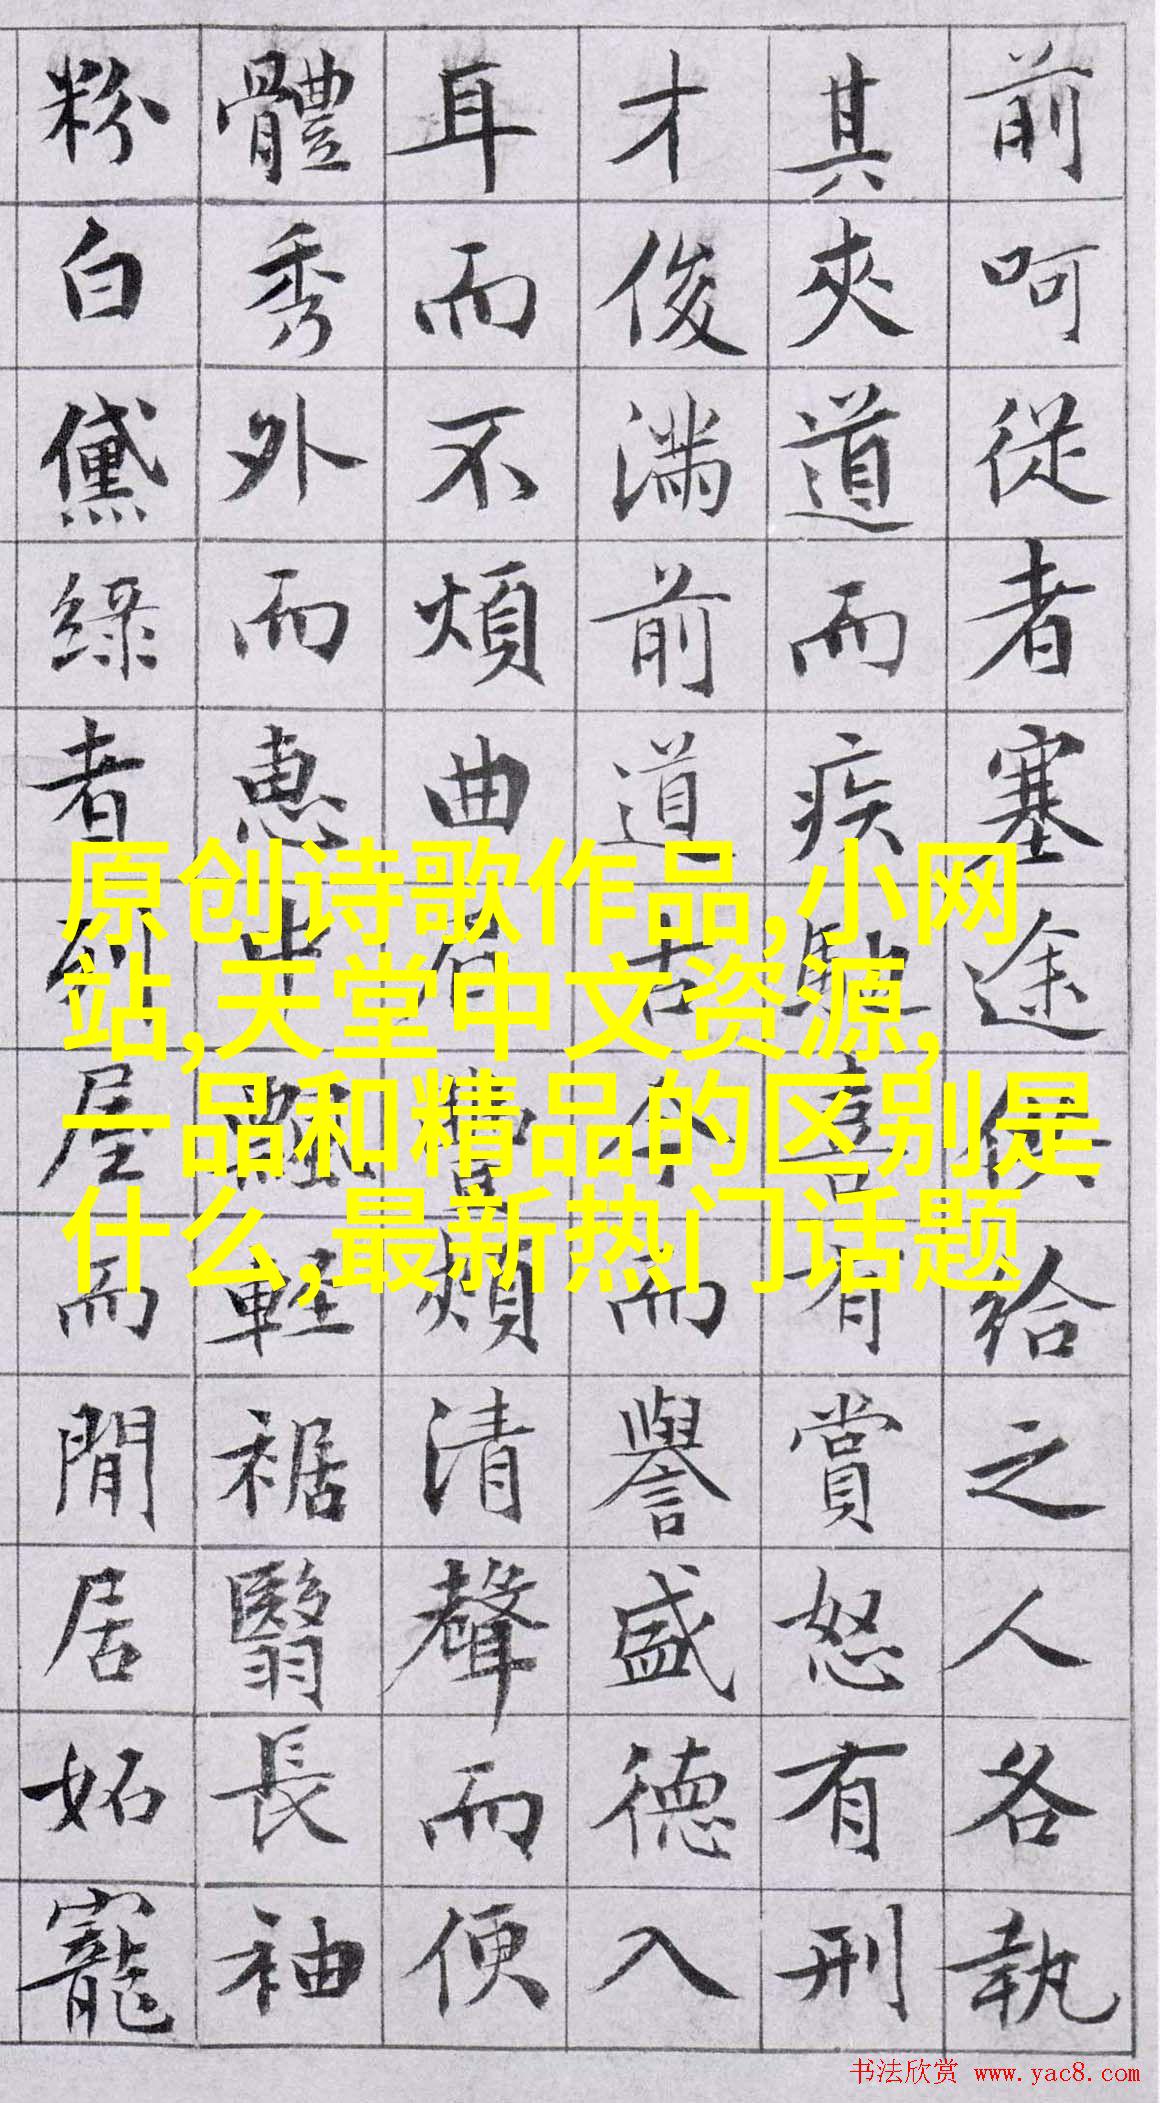 前呵從者塞途供給之人各執
其夾道而疾馳喜有賞怒有刑
才俊滿前道古今而譽盛德入
耳而不煩曲眉豐頰清聲而便
體秀外而惠中飄輕裾翳長袖
粉白黛綠者列屋而閒居妬寵
原创诗歌作品,小网
站,天堂中文资源,
一品和精品的区别是
什么,最新热门话题
书法欣赏 www.yac8.com